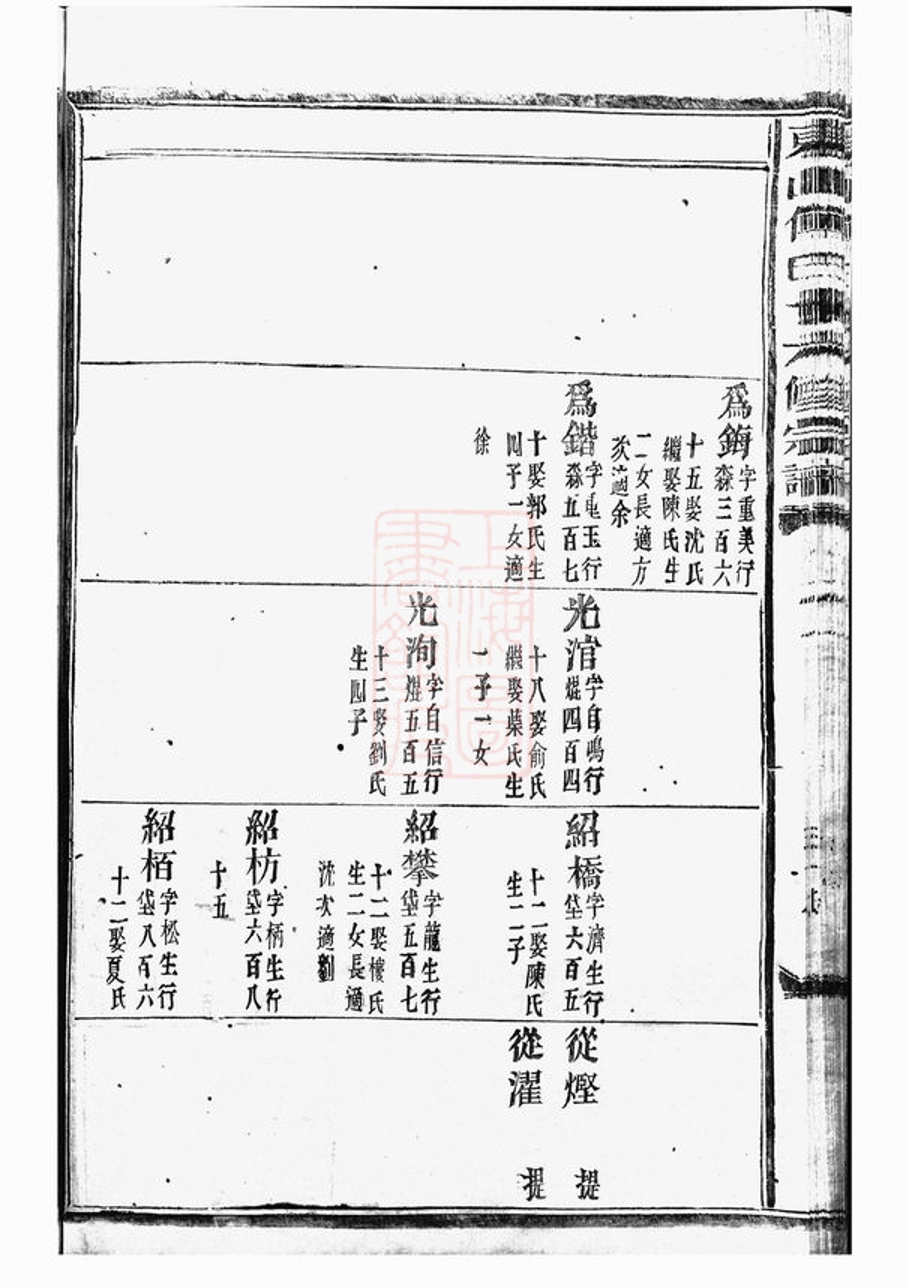 為鋂
字重美行
森三百六
十五娶沈氏
繼娶陳氏生
二女長適方
次適余
為鍇
字重玉行
森五百七
十娶郭氏生
四子一女適
徐
光涫
字自鳴行
焜四百四
十八娶俞氏
繼娶葉氏生
一子一女
光洵
字自信行
焜五百五
十三娶劉氏
生四子
紹橋
字濟生行
垡六百五
十二娶陳氏
生二子
紹攀
字龍生行
垡五百七
十二娶樓氏
生二女長適
沈次適劉
紹枋
字柄生行
垡六百八
十五
紹栢
字松生行
垡八百六
十二娶夏氏
從煙 提
從濯 提
上海圖
書館藏